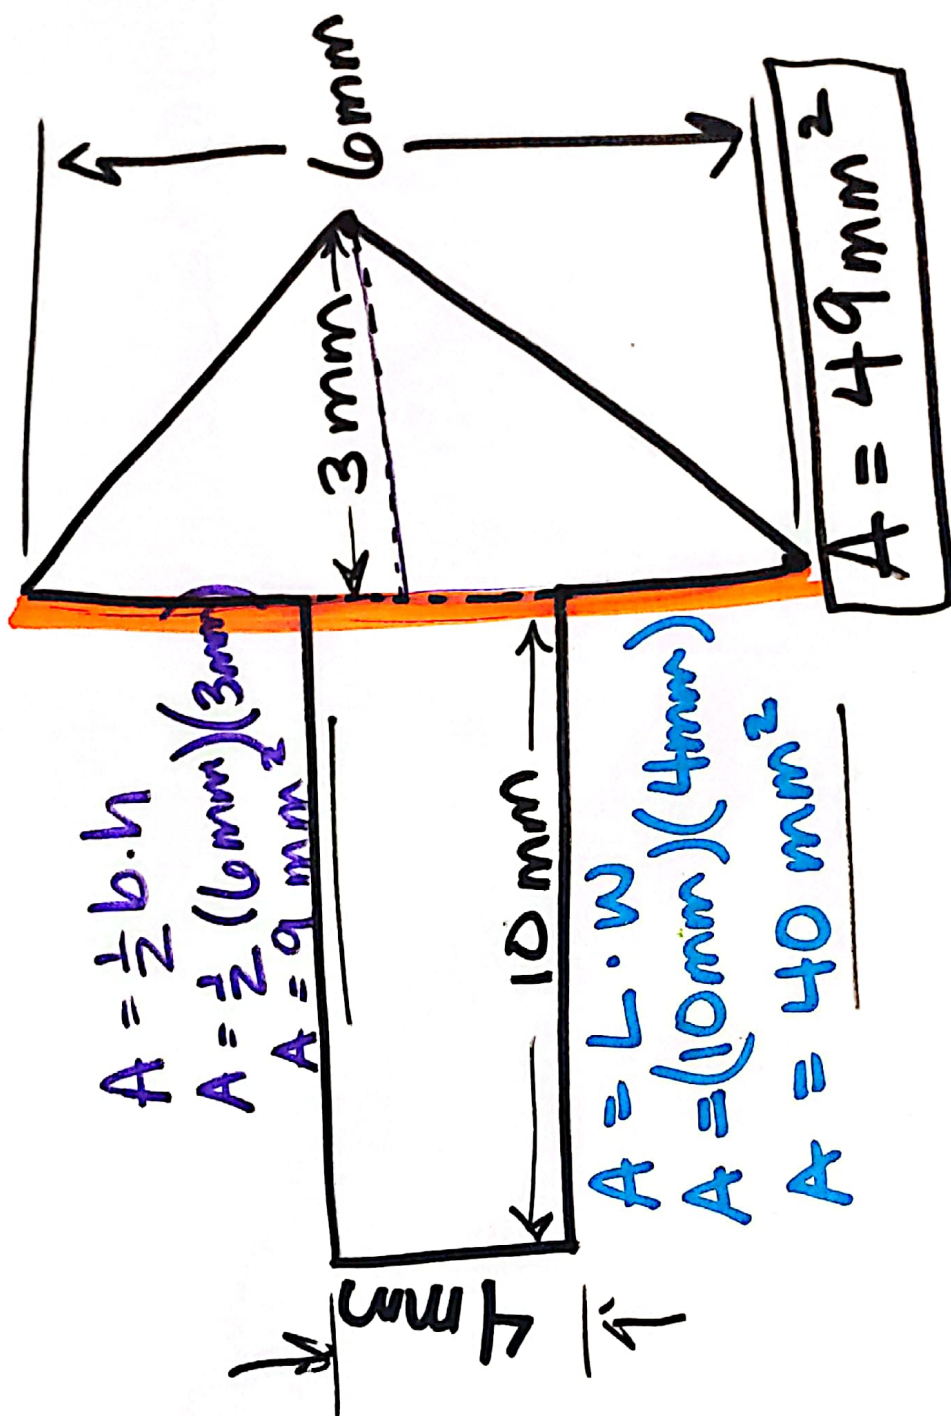 6mm
3mm
A = 49mm²
A = ½ b·h
A = ½ (6mm)(3mm)
A = 9 mm²
10mm
A = L·W
A = (10mm)(4mm)
A = 40 mm²
4mm